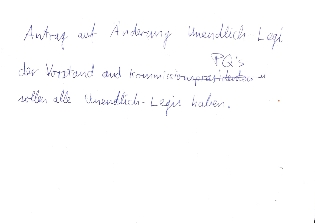 Antrag auf Änderung Unendlich Legi
PQ's
der Vorstand und Kommissionspräsidenten
sollen alle Unendlich-Legis haben.